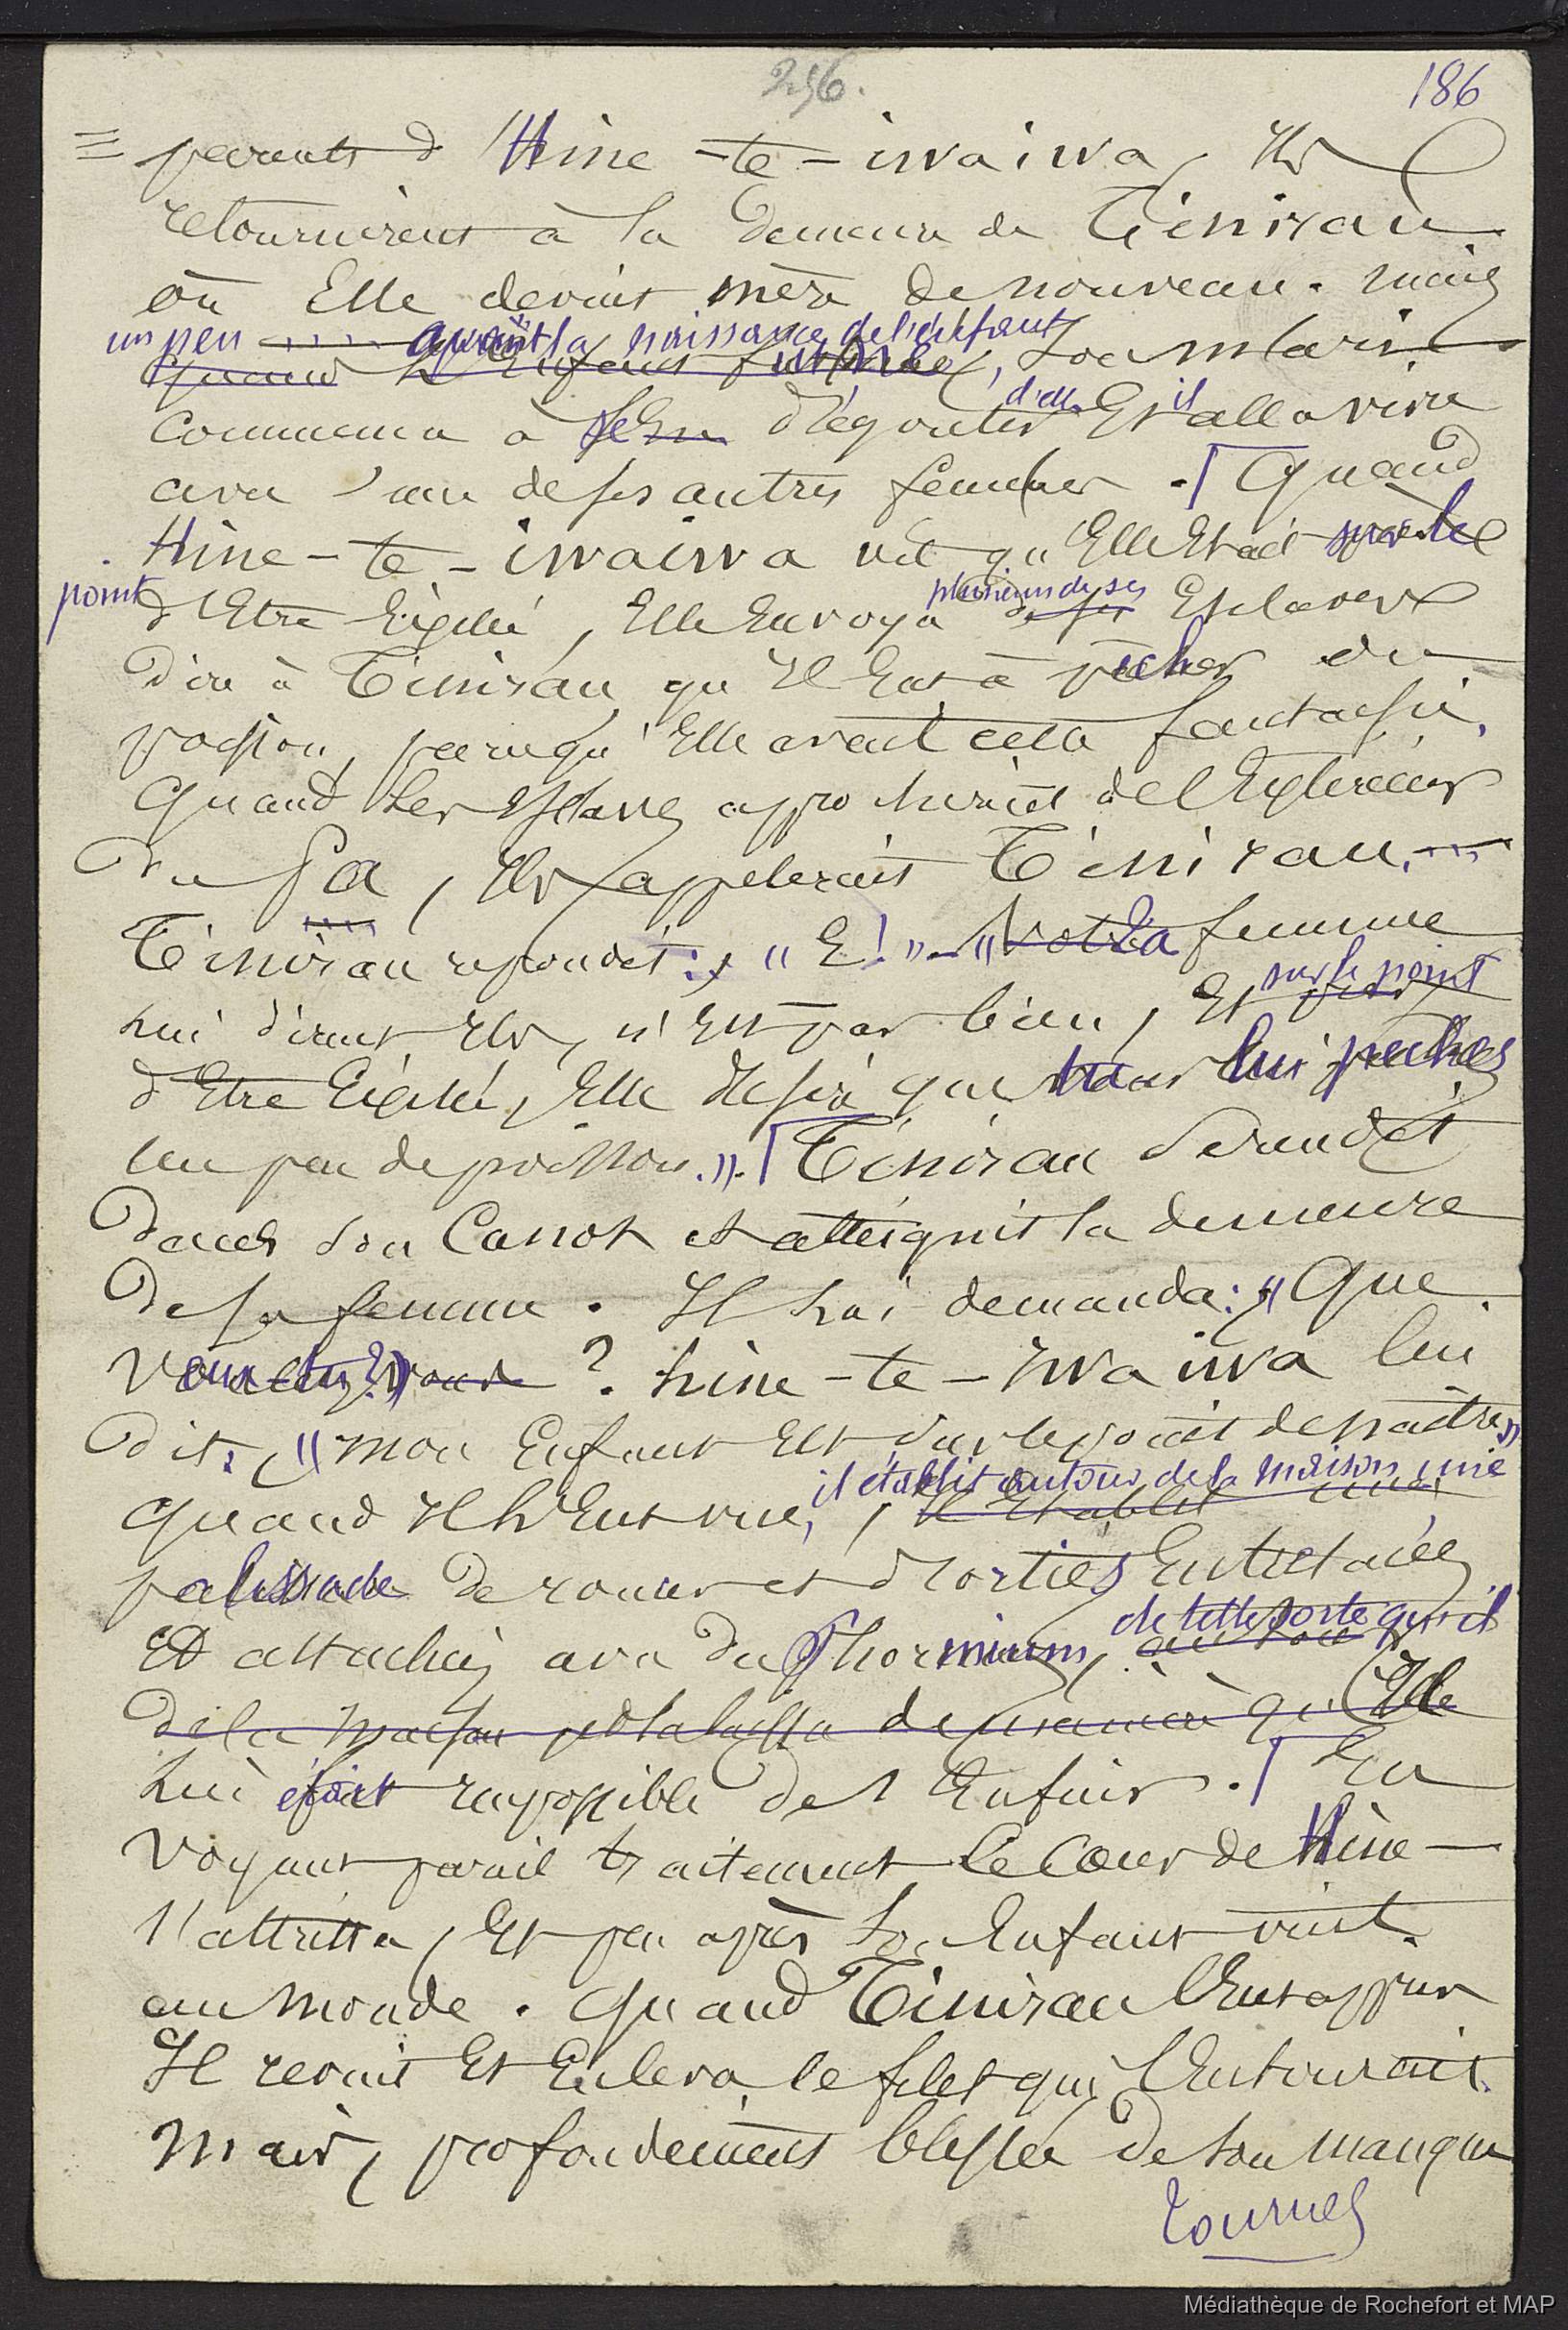 256.
186
parents d'Hine-te-iwaiwa, Ils
retournèrent à la demeure de Tinirau
où Elle devint mère de nouveau. mais
un peu avant la naissance de l'enfant
quand l'Enfant fut né, son Mari
d'elle il
commença à se dégouter Et alla vivre
avec l'une de ses autres femmes. Quand
Hine-te-iwaiwa vit qu'Elle Etait sur le
point plusieurs de ses
d'Etre , Elle Envoya de ses Esclaves
dire à Tinirau qu'Il Eut à pêcher du
poisson, parcequ'Elle avait cette fantaisie.
Quand les Esclaves approchèrent de l'Extérieur
du Pa, Ils appelèrent Tinirau.
Tinirau répondit: "E!" - "Votre Ta femme
sur le point
lui dirent Ils, n'Est pas bien, Et
d'Etre , Elle désire que tu lui pêches
un peu de poisson." Tinirau se rendit
dans son Canot et atteignit la demeure
de sa femme. Il lui demanda: "Que
veux-tu?" vous ? hine-te-iwaiwa lui
dit, "mon Enfant Est sur le point de naître"
il établit autour de la maison une
Quand Il l'Eut vue, Il Etablit une
palissade de ronces et d'orties Entrelacées
de telle sorte qu'il
Et attachées avec du Phormium, autour
de la maison et la laissa de manière qu'Il
lui était impossible de s'Enfuir. En
voyant pareil traitement le Cœur de Hine-
s'attrista, Et peu après son Enfant vint
au monde. Quand Tinirau l'Eut appris
Il revint Et Enleva le filet qui l'Entourait.
Mais, profondément blessée de son manque
tournez
Médiathèque de Rochefort et MAP